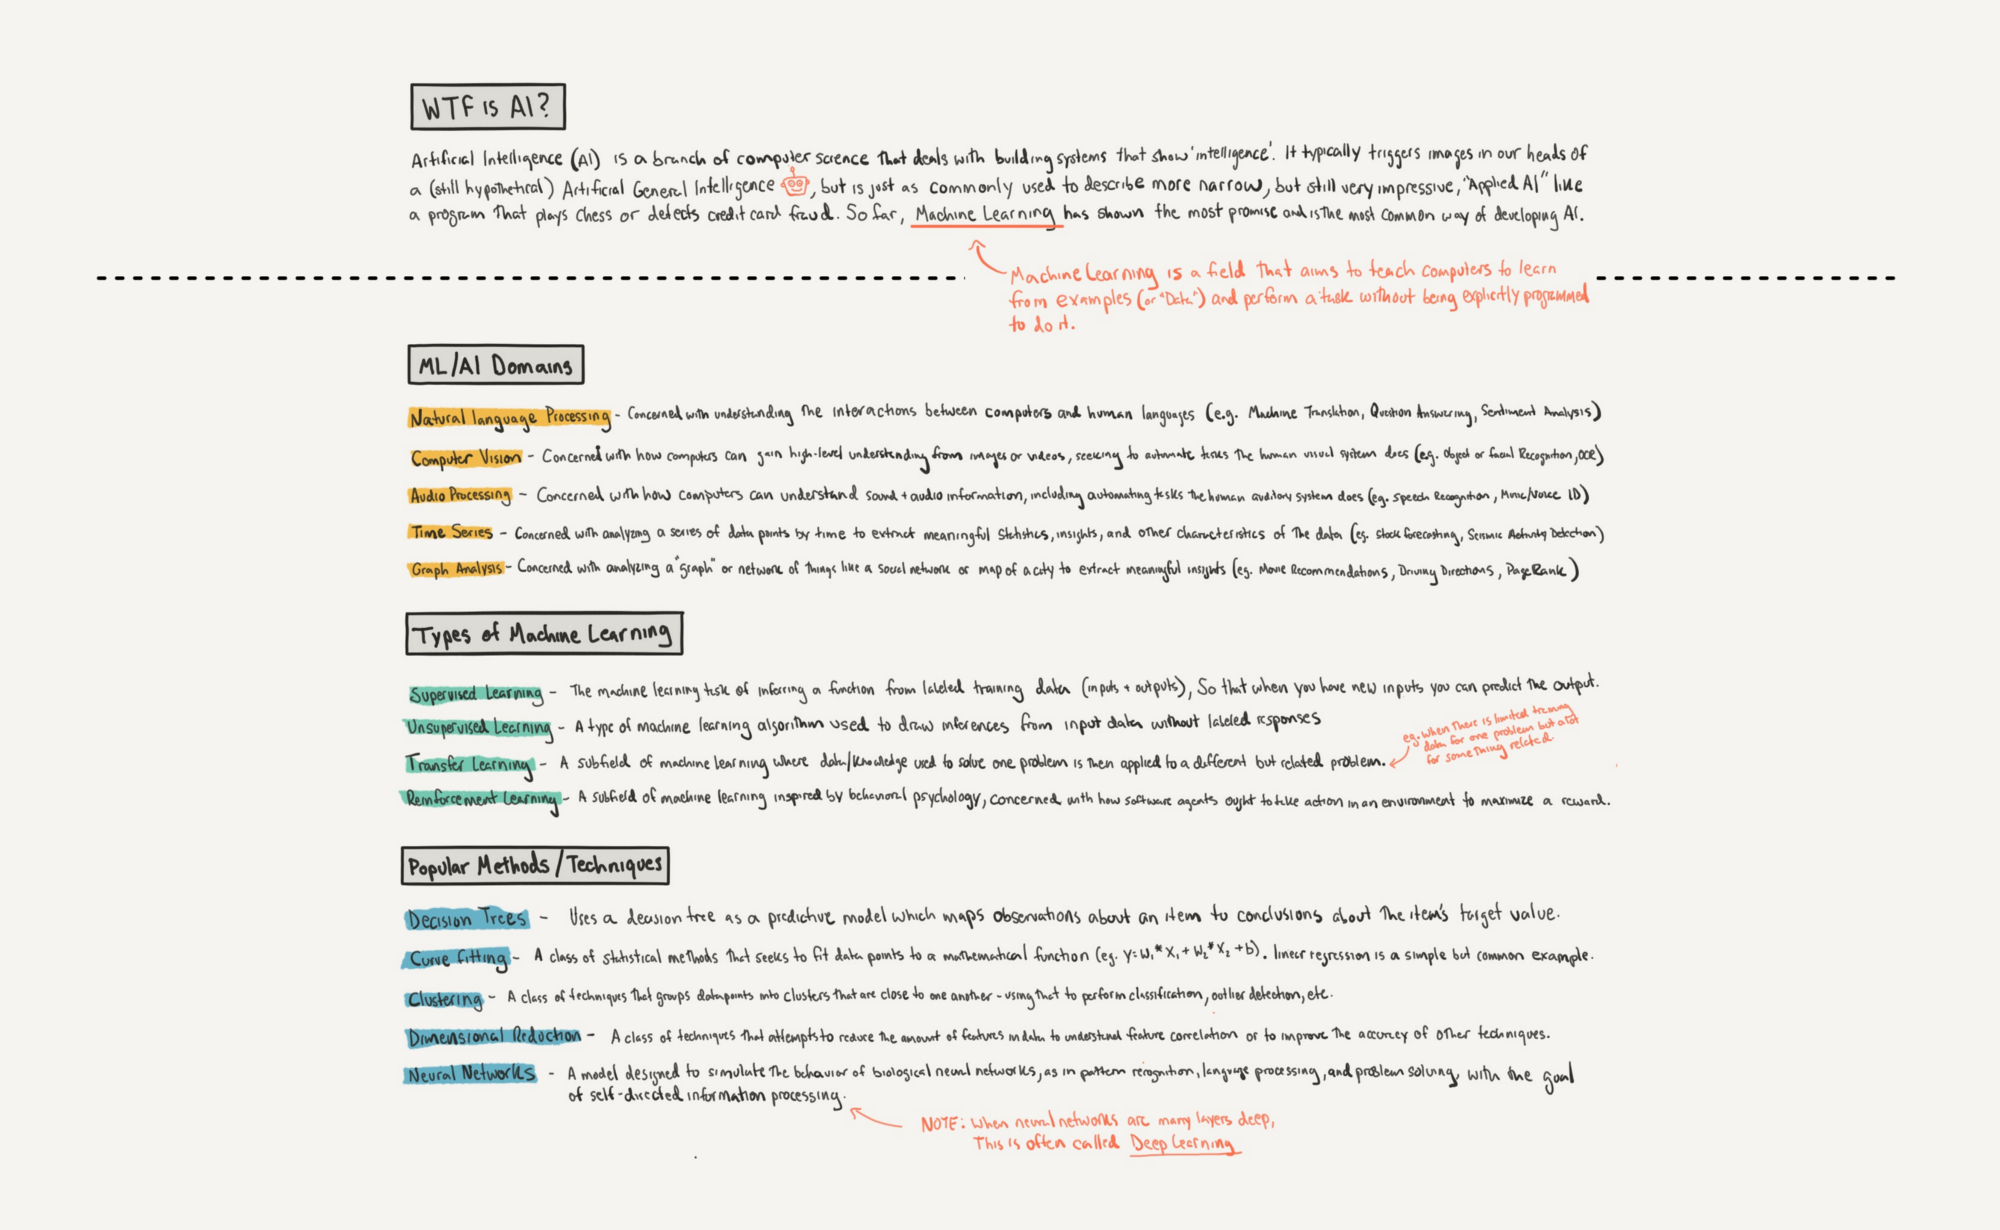 WTF is AI?
Artificial Intelligence (AI) is a branch of computer science that deals with building systems that show 'intelligence'. It typically triggers images in our heads of
a (still hypothetical) Artificial General Intelligence, but is just as commonly used to describe more narrow, but still very impressive, "Applied AI" like
a program that plays chess or detects credit card fraud. So far, Machine Learning has shown the most promise and is the most common way of developing AI.
Machine Learning is a field that aims to teach computers to learn
from examples (or "Data") and perform a task without being explicitly programmed
to do it.
ML/AI Domains
Natural language Processing - Concerned with understanding the interactions between computers and human languages (e.g. Machine Translation, Question Answering, Sentiment Analysis)
Computer Vision - Concerned with how computers can gain high-level understanding from images or videos, seeking to automate tasks the human visual system does (e.g. Object or facial Recognition, OCR)
Audio Processing - Concerned with how computers can understand sound + audio information, including automating tasks the human auditory system does (eg. Speech Recognition, Music/Voice ID)
Time Series - Concerned with analyzing a series of data points by time to extract meaningful statistics, insights, and other characteristics of the data (eg. Stock forecasting, Seismic Activity Detection)
Graph Analysis - Concerned with analyzing a "graph" or network of things like a social network or map of a city to extract meaningful insights (eg. Movie Recommendations, Driving Directions, PageRank)
Types of Machine Learning
Supervised Learning - The machine learning task of inferring a function from labeled training data (inputs + outputs), So that when you have new inputs you can predict the output.
Unsupervised Learning - A type of machine learning algorithm used to draw inferences from input data without labeled responses
eg. when there is limited training
data for one problem but a lot
for something related.
Transfer Learning - A subfield of machine learning where data/knowledge used to solve one problem is then applied to a different but related problem.
Reinforcement Learning - A subfield of machine learning inspired by behavioral psychology, concerned with how software agents ought to take action in an environment to maximize a reward.
Popular Methods/Techniques
Decision Trees - Uses a decision tree as a predictive model which maps observations about an item to conclusions about the item's target value.
Curve fitting - A class of statistical methods that seeks to fit data points to a mathematical function (eg. y=w₁*x₁+w₂*x₂+b). linear regression is a simple but common example.
Clustering - A class of techniques that groups datapoints into clusters that are close to one another - using that to perform classification, outlier detection, etc.
Dimensional Reduction - A class of techniques that attempts to reduce the amount of features in data to understand feature correlation or to improve the accuracy of other techniques.
Neural Networks - A model designed to simulate the behavior of biological neural networks, as in pattern recognition, language processing, and problem solving, with the goal
of self-directed information processing.
NOTE: when neural networks are many layers deep,
This is often called Deep Learning